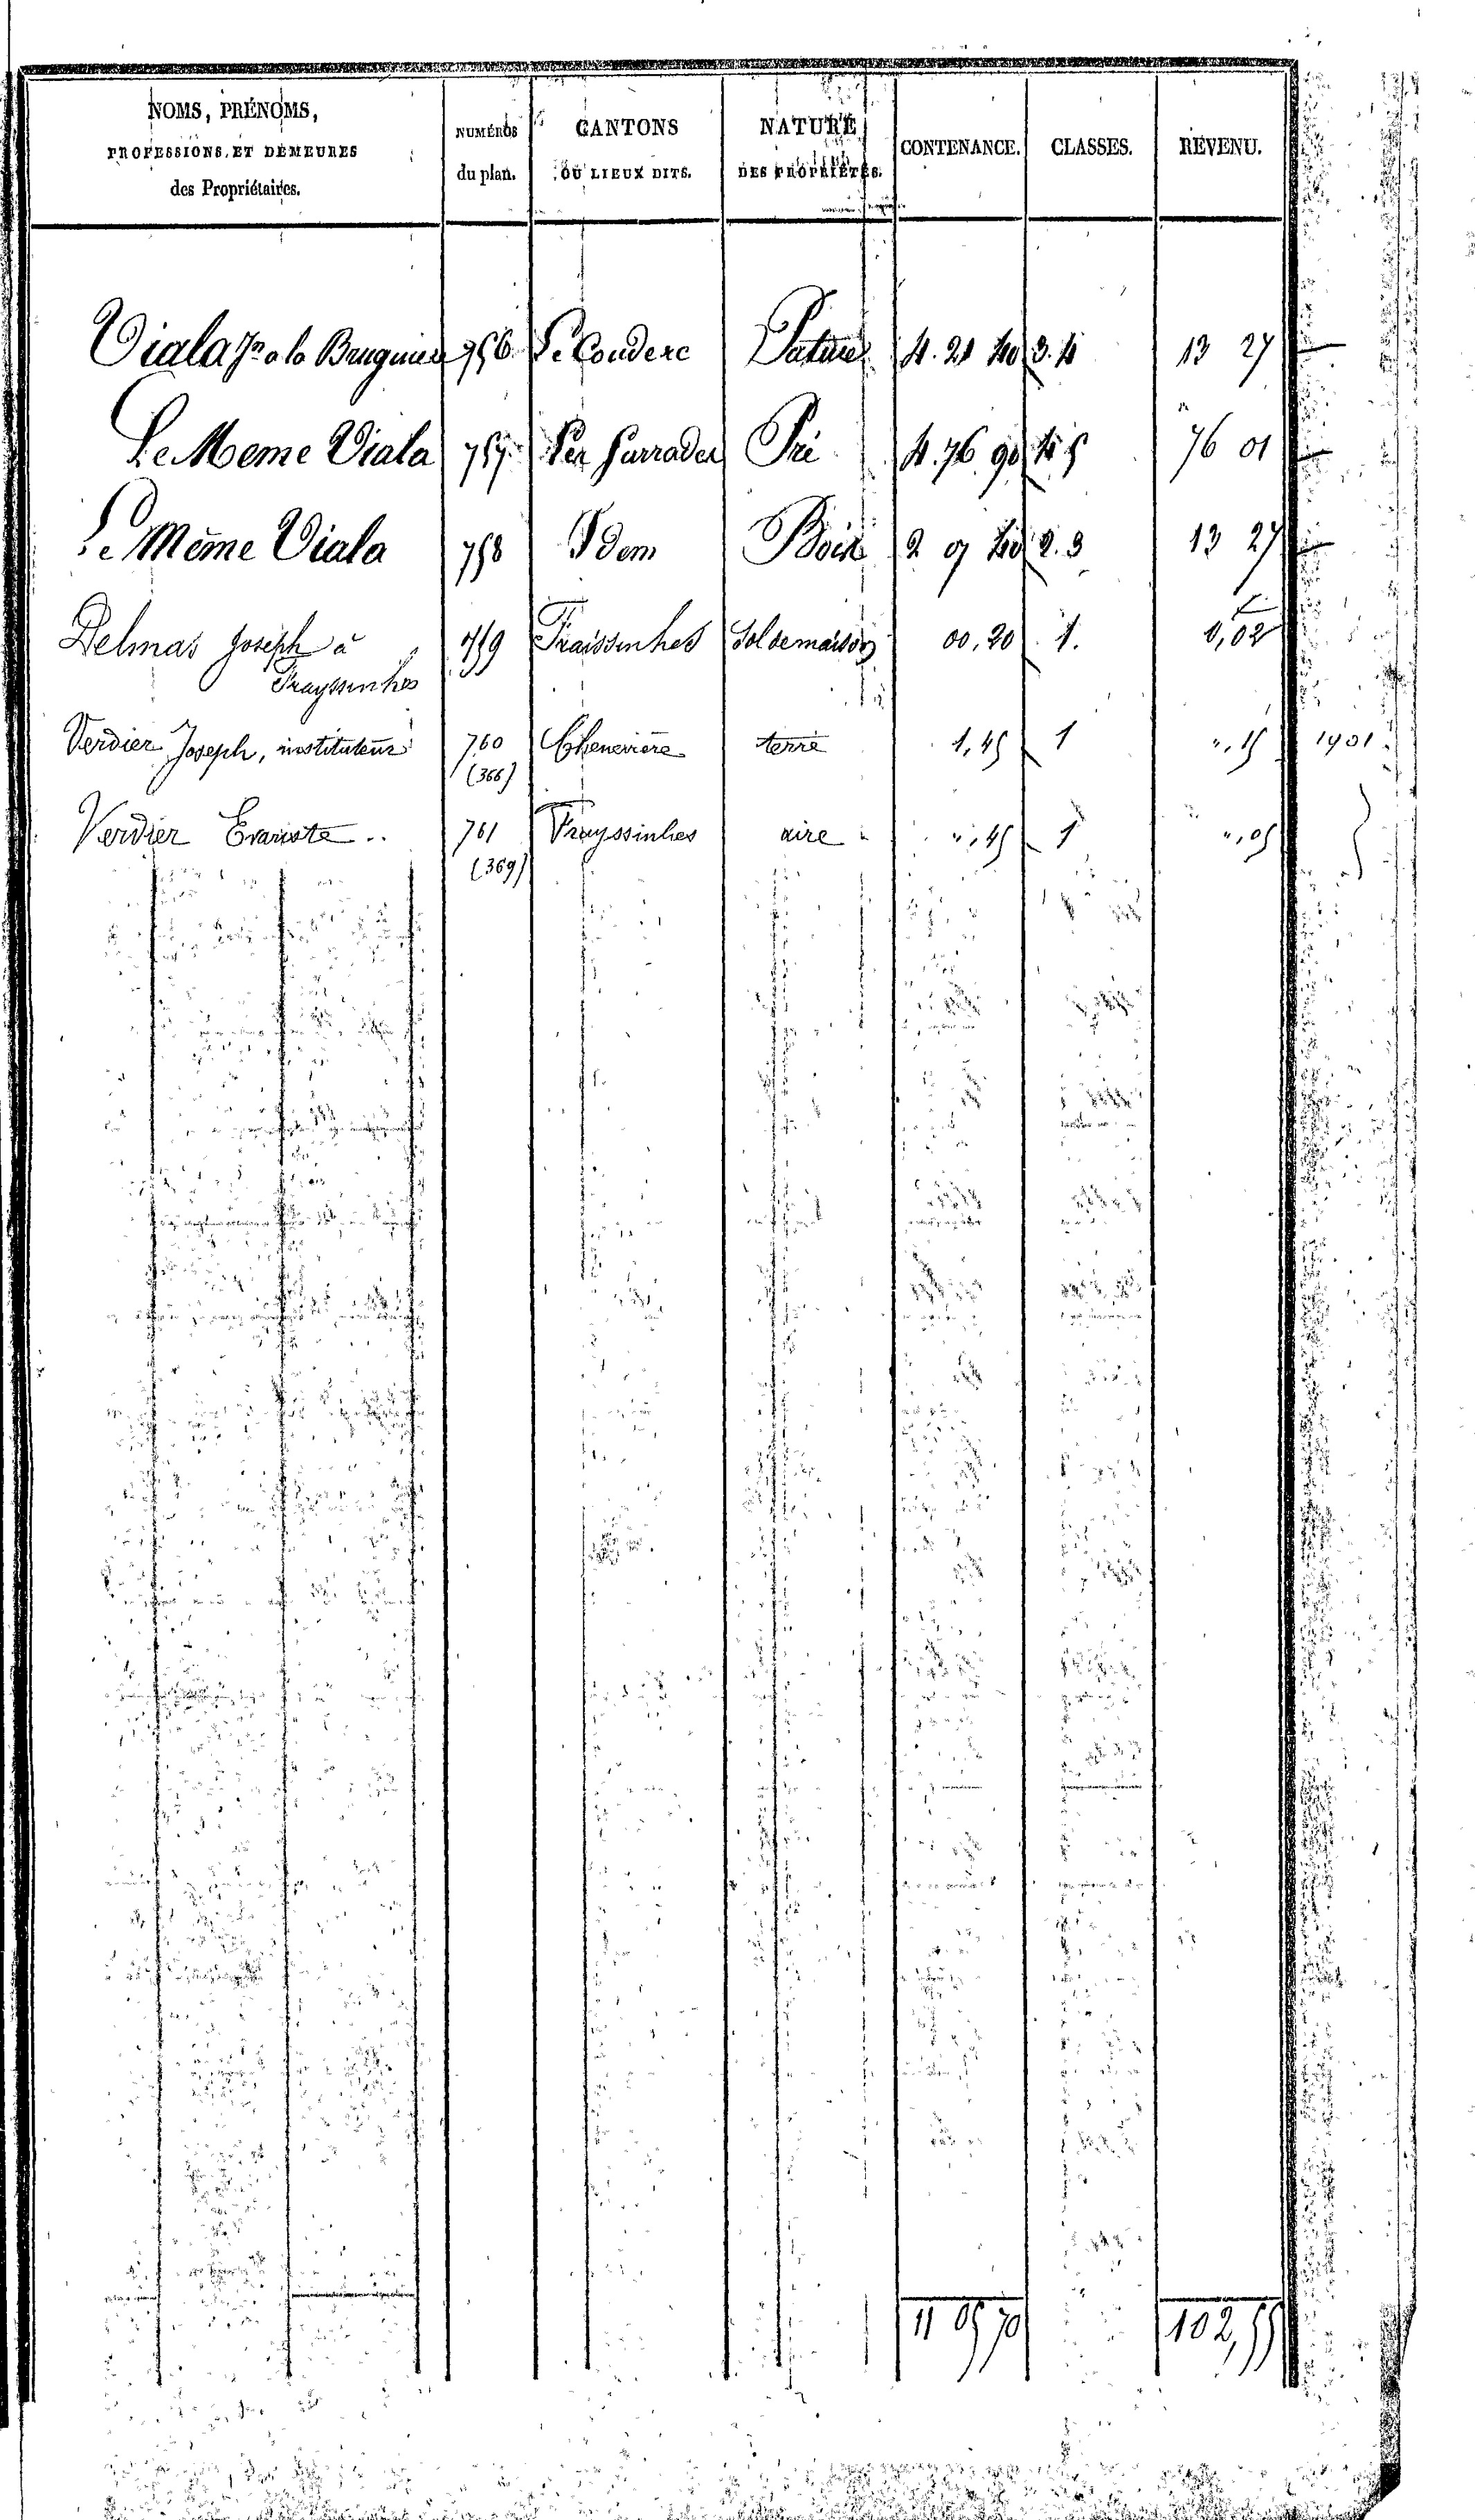 NOMS, PRÉNOMS,
PROFESSIONS, ET DEMEURES
des Propriétaires.
NUMÉROS
du plan.
CANTONS
OU LIEUX DITS.
NATURE
DES PROPRIÉTÉS.
CONTENANCE.
CLASSES.
REVENU.
Viala Jn a la Bruguier 756 Le Couderc Pature 4. 21 40 3. 4 13 27
Le Meme Viala 757 Pré 4. 76 90 4 5 76 01
Le Même Viala 758 Idem Bois 2 07 40 2. 3 13 27
Delmas Joseph à 759 Fraissinhes Sol de maison 00, 20 1. 0,02
Frayssinhes
Verdier Joseph, instituteur 760 Chenevière terre 1, 45 1 ", 15 1901
(366)
Verdier Evariste .. 761 Frayssinhes aire ", 45 1 ", 05
(369)
11 05 70 102,55